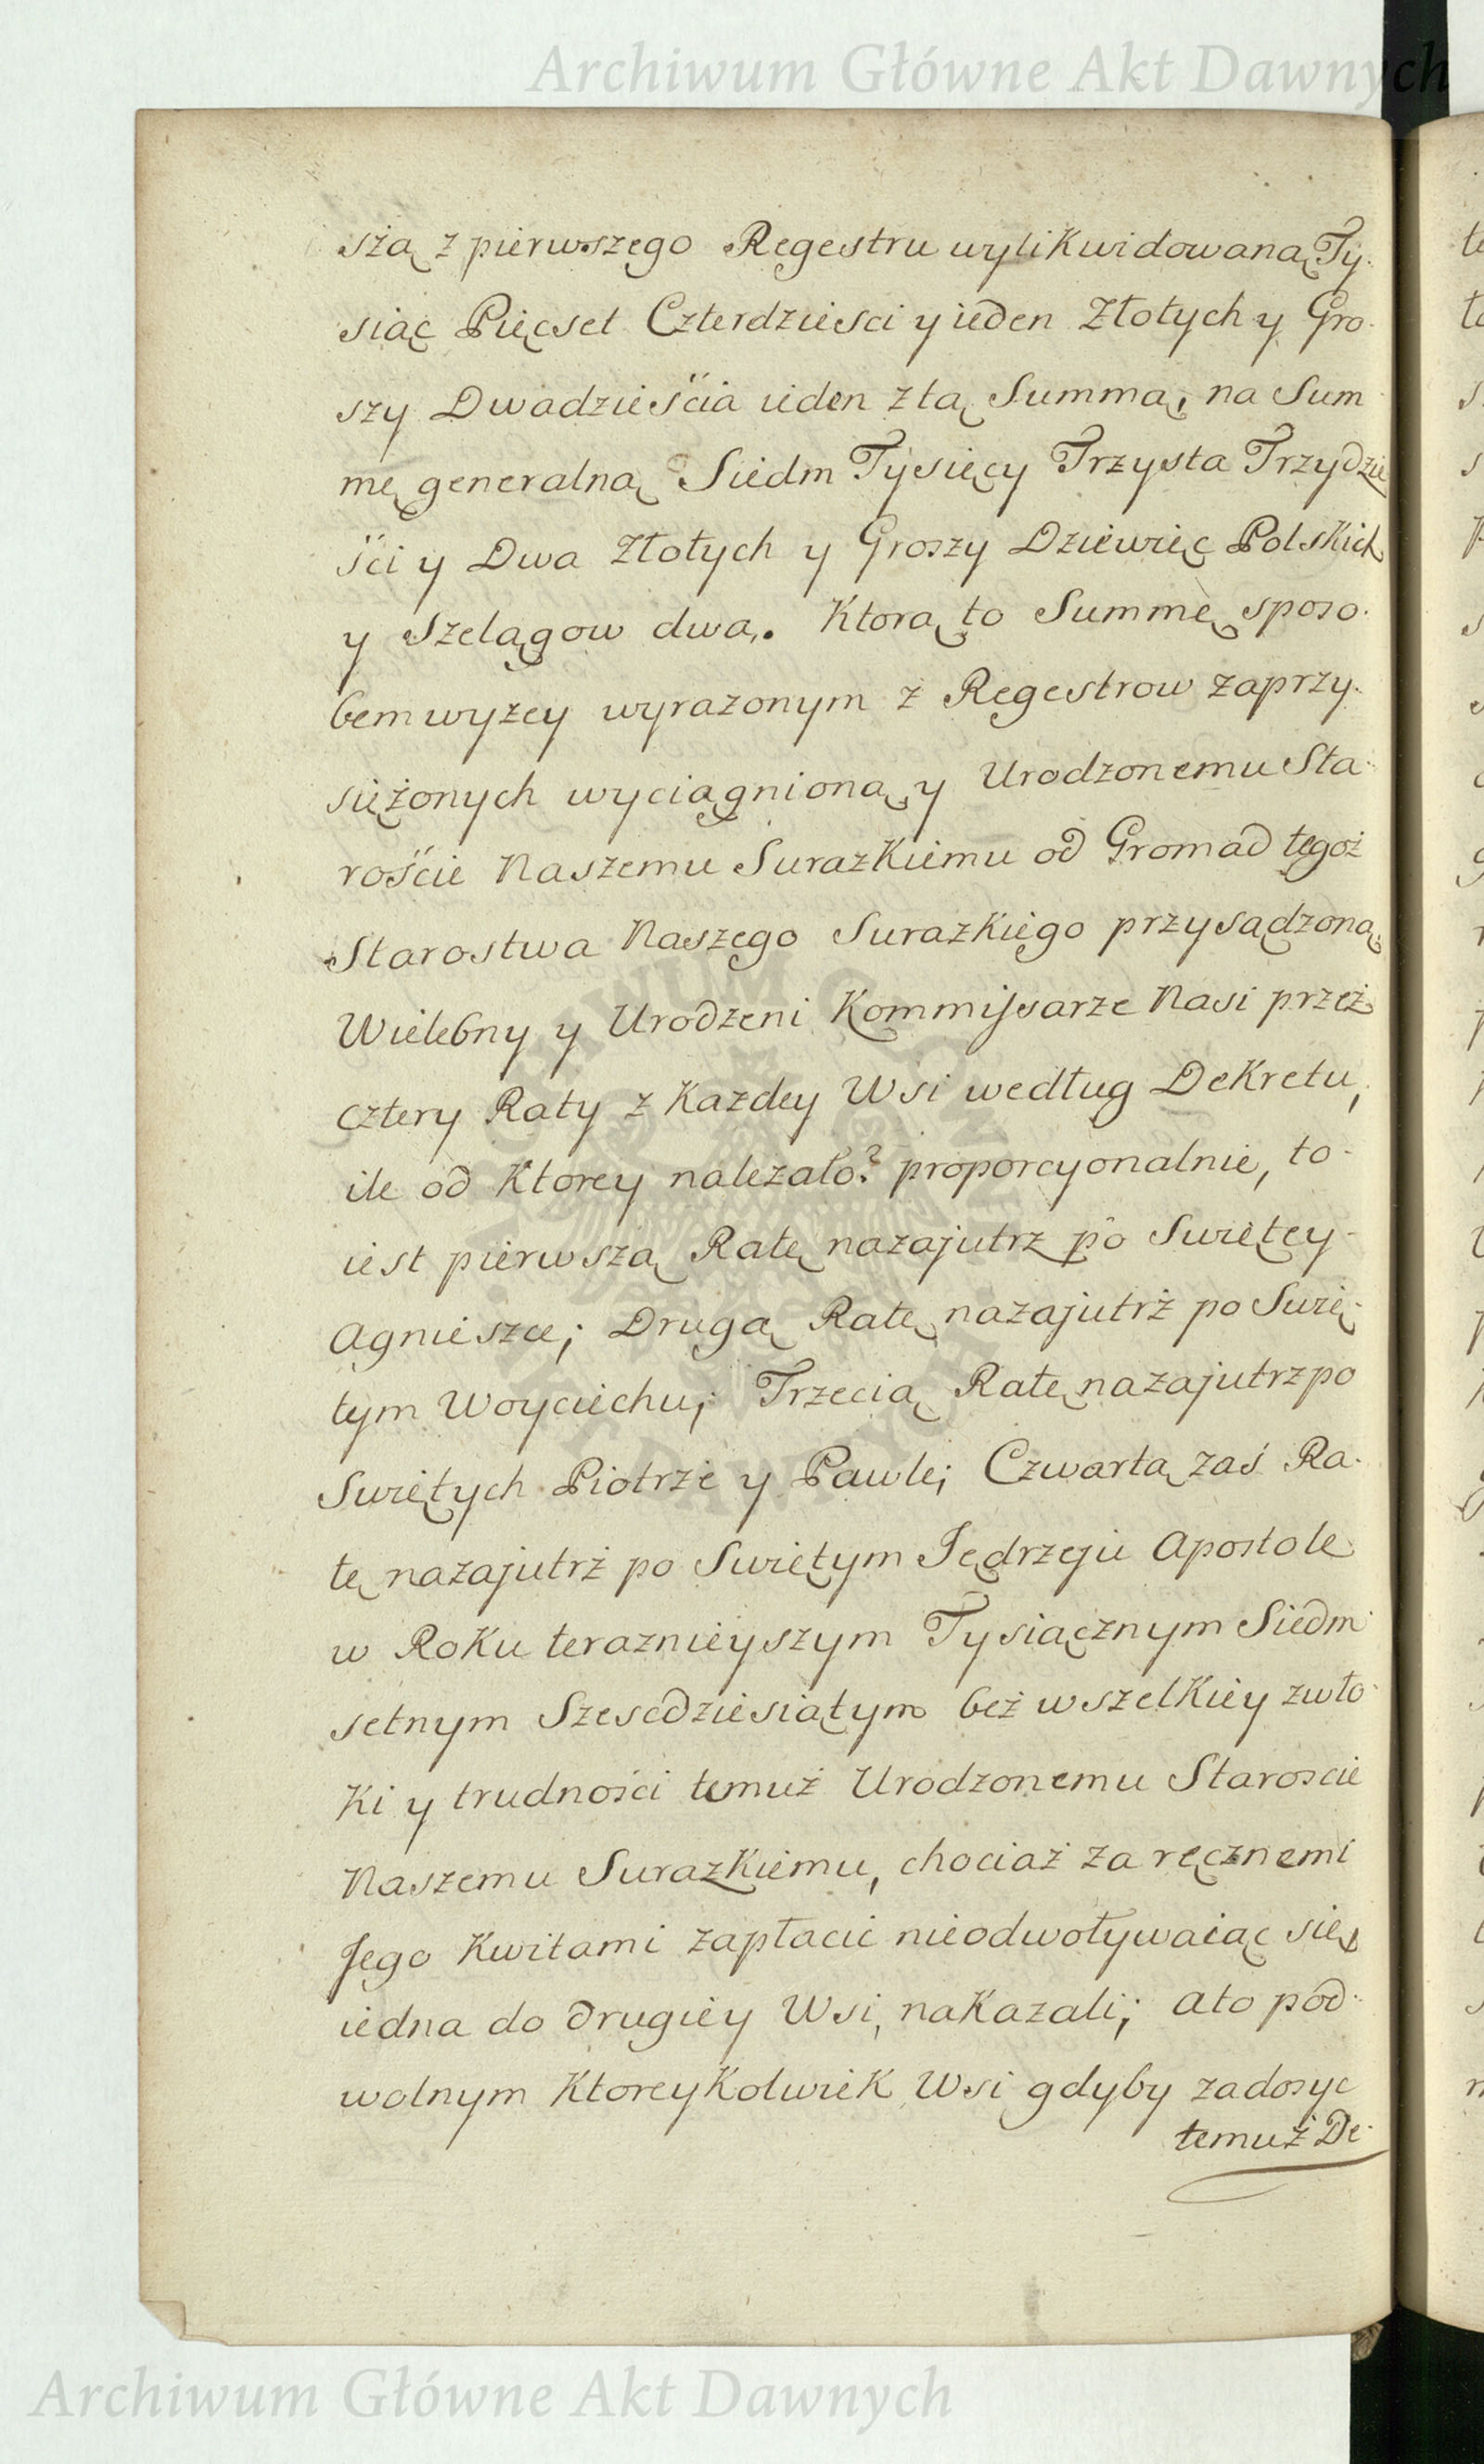 Archiwum Główne Akt Dawnych
szą z pierwszego Regestru wylikwidowaną Ty-
siąc Pięcset Czterdziesci y ieden Złotych y Gro-
szy Dwadzieścia ieden z tą Summą, na Sum
mę generalną Siedm Tysięcy Trzysta Trzydzie
ści y Dwa Złotych y Groszy Dziewięc Polskich
y Szelągow dwa. Ktorą to Summę sposo-
bem wyzey wyrazonym z Regestrow zaprzy-
siężonych wyciągnioną y Urodzonemu Sta-
roście Naszemu Surazkiemu od Gromad tegoż
Starostwa Naszego Surazkiego przysądzoną
Wielebny y Urodzeni Kommissarze Nasi przez
cztery Raty z Kazdey Wsi według Dekretu,
ile od Ktorey nalezało? proporcyonalnie, to-
iest pierwszą Ratę nazajutrz po Swiętey
Agnieszce; Drugą Ratę nazajutrż po Swię-
tym Woyciechu; Trzecią Ratę nazajutrz po
Swiętych Piotrze y Pawle; Czwartą zaś Ra-
tę nazajutrż po Swiętym Jędrzeju Apostole
w Roku teraznieyszym Tysiącznym Siedm-
setnym Szescdziesiątym beż wszelkiey zwło-
ki y trudności temuż Urodzonemu Staroscie
Naszemu Surazkiemu, chociaż za ręcznemi
Jego Kwitami zapłacic nieodwoływaiąc się
iedna do drugiey Wsi, nakazali; a to pod-
wolnym Ktoreykolwiek Wsi gdyby zadosyc
temuż De-
Archiwum Główne Akt Dawnych